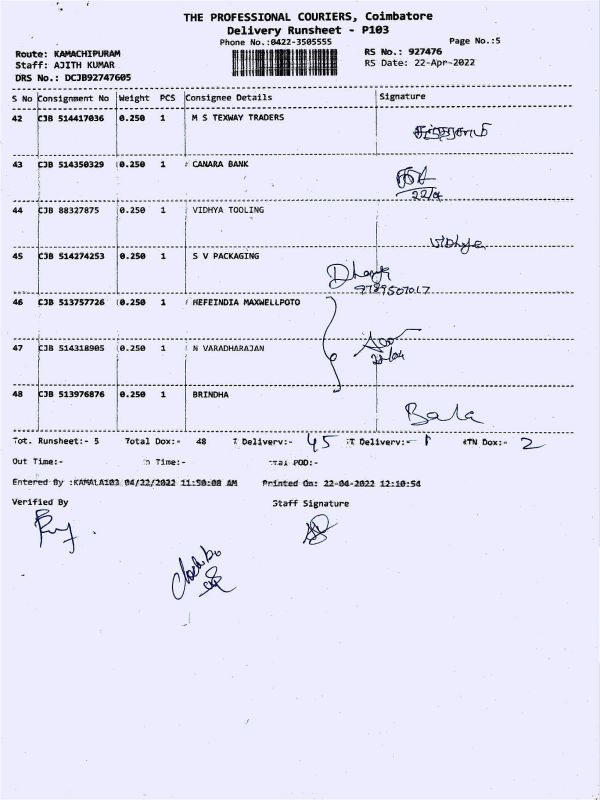 THE PROFESSIONAL COURIERS, Coimbatore
Delivery Runsheet - P103
Phone No.:0422-3505555
Page No.:5
Route: KAMACHIPURAM
RS No.: 927476
Staff: AJITH KUMAR
RS Date: 22-Apr-2022
DRS No.: DCJB92747605
S No Consignment No Weight PCS Consignee Details Signature
42 CJB 514417036 0.250 1 M S TEXWAY TRADERS
43 CJB 514350329 0.250 1 CANARA BANK
22/4
44 CJB 88327875 0.250 1 VIDHYA TOOLING
Vidhya
45 CJB 514274253 0.250 1 S V PACKAGING
46 CJB 513757726 0.250 1 HEFEINDIA MAXWELLPOTO
47 CJB 514318905 0.250 1 N VARADHARAJAN
22/04
48 CJB 513976876 0.250 1 BRINDHA
Bala
Tot. Runsheet:- 5 Total Dox:- 48 T Delivery:- 45 T Delivery:- 1 RTN Dox:- 2
Out Time:- In Time:- Total POD:-
Entered By :KAMALA103 04/22/2022 11:50:08 AM Printed On: 22-04-2022 12:10:54
Verified By Staff Signature